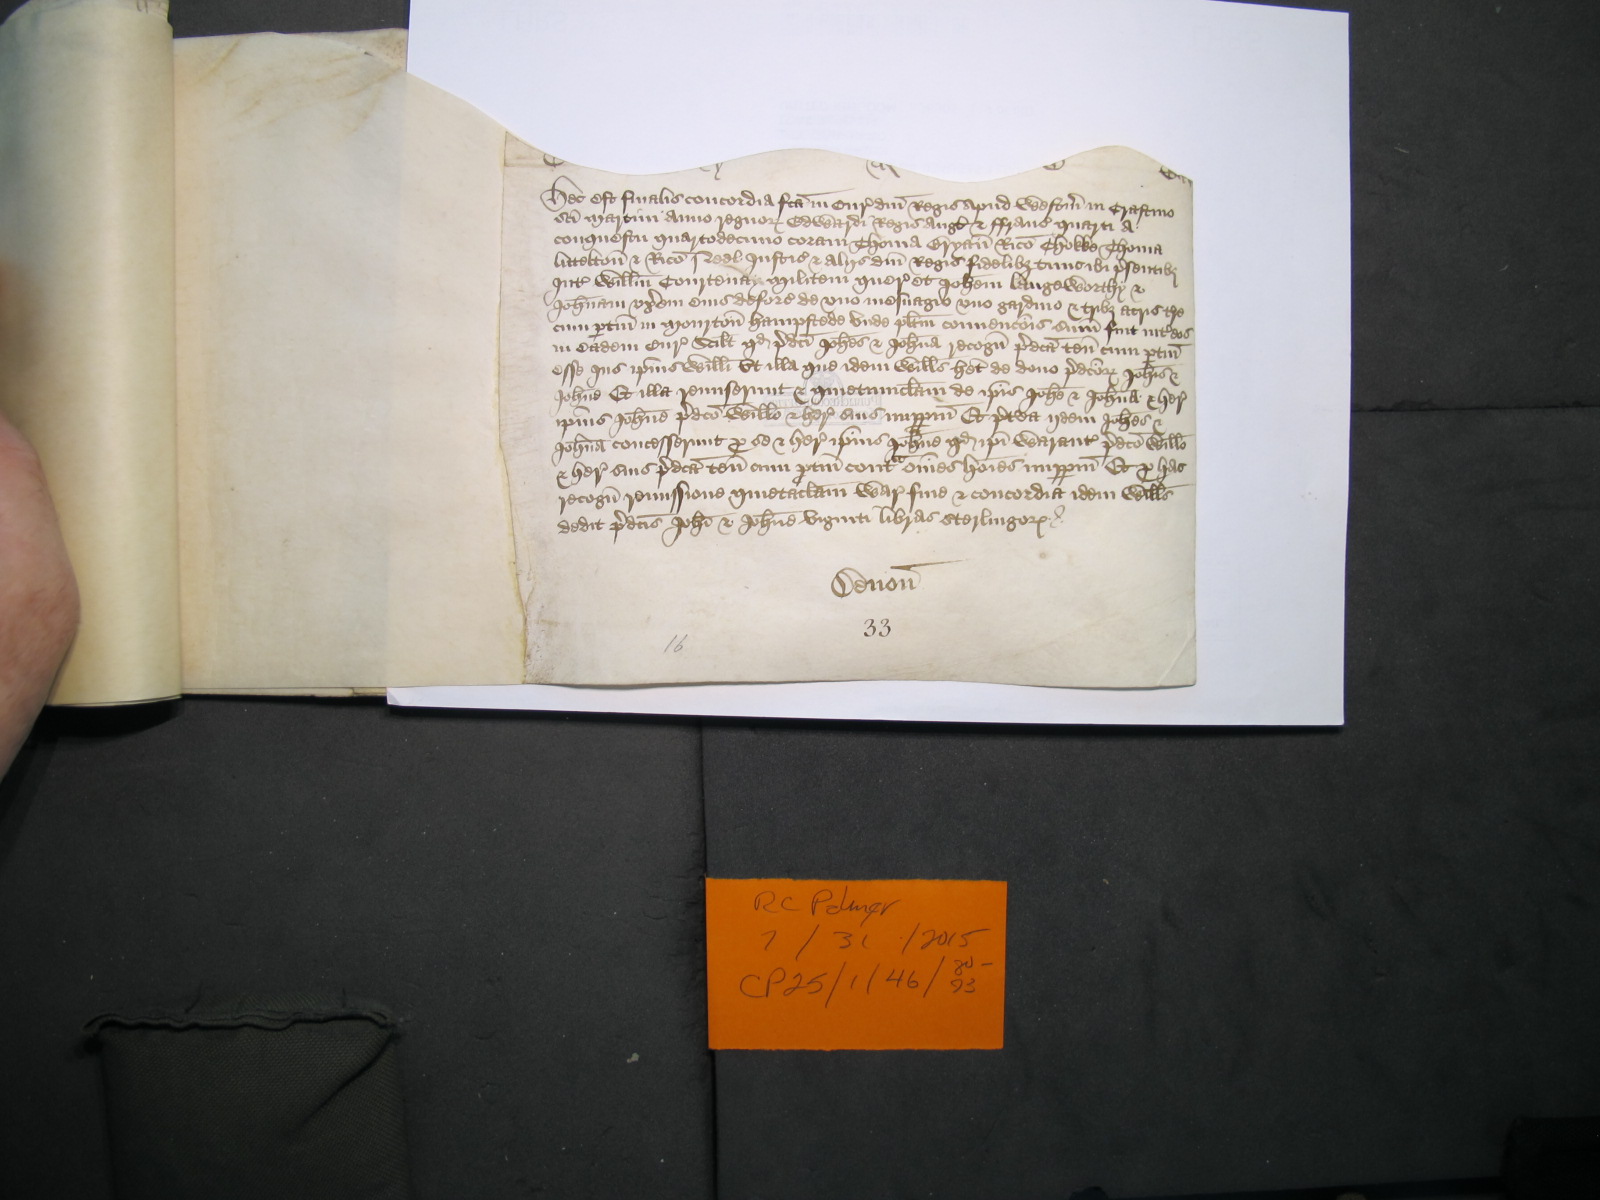 Hec est finalis concordia fca in Cur dni Regis apud Westm in Crastino
sci Martini Anno regnor Edwardi Regis Angl & ffranc quarti a
conquestu quartodecimo coram Thoma Bryan Rico Chokke Thoma
litelton & Rico Nedl Justic & aliis dni Regis fidelibz tunc ibi psentibz
Int Willm Courtenay militem quer et Johem langeworthy &
Johnam uxem eius deforc de uno mesuagio uno gardino & tribz acris tre
cum ptin in Moriton hampstede unde plitm convencois sum fuit int eos
in eadem Cur Scilt qd pdci Johes & Johna recogn pdca ten cum ptin
esse ius ipius Willi Ut illa que idem Wills het de dono pdcor Johis &
Johne Et illa remiserunt & quietumclam de ipis Johe & Johna & her
ipius Johne pdco Willo & her suis imppm Et ptea iidem Johes &
Johna concesserunt p se & her ipius Johne qd ipi Warant pdco Willo
& her suis pdca ten cum ptin cont oms hoies imppm Et p hac
recogn remissione quietaclam War fine & concordia idem Wills
dedit pdcis Johi & Johne viginti libras sterlingor
Devon
33
16
RC Palmer
7 / 31 / 2015
CP25/1/46/ 80-
93